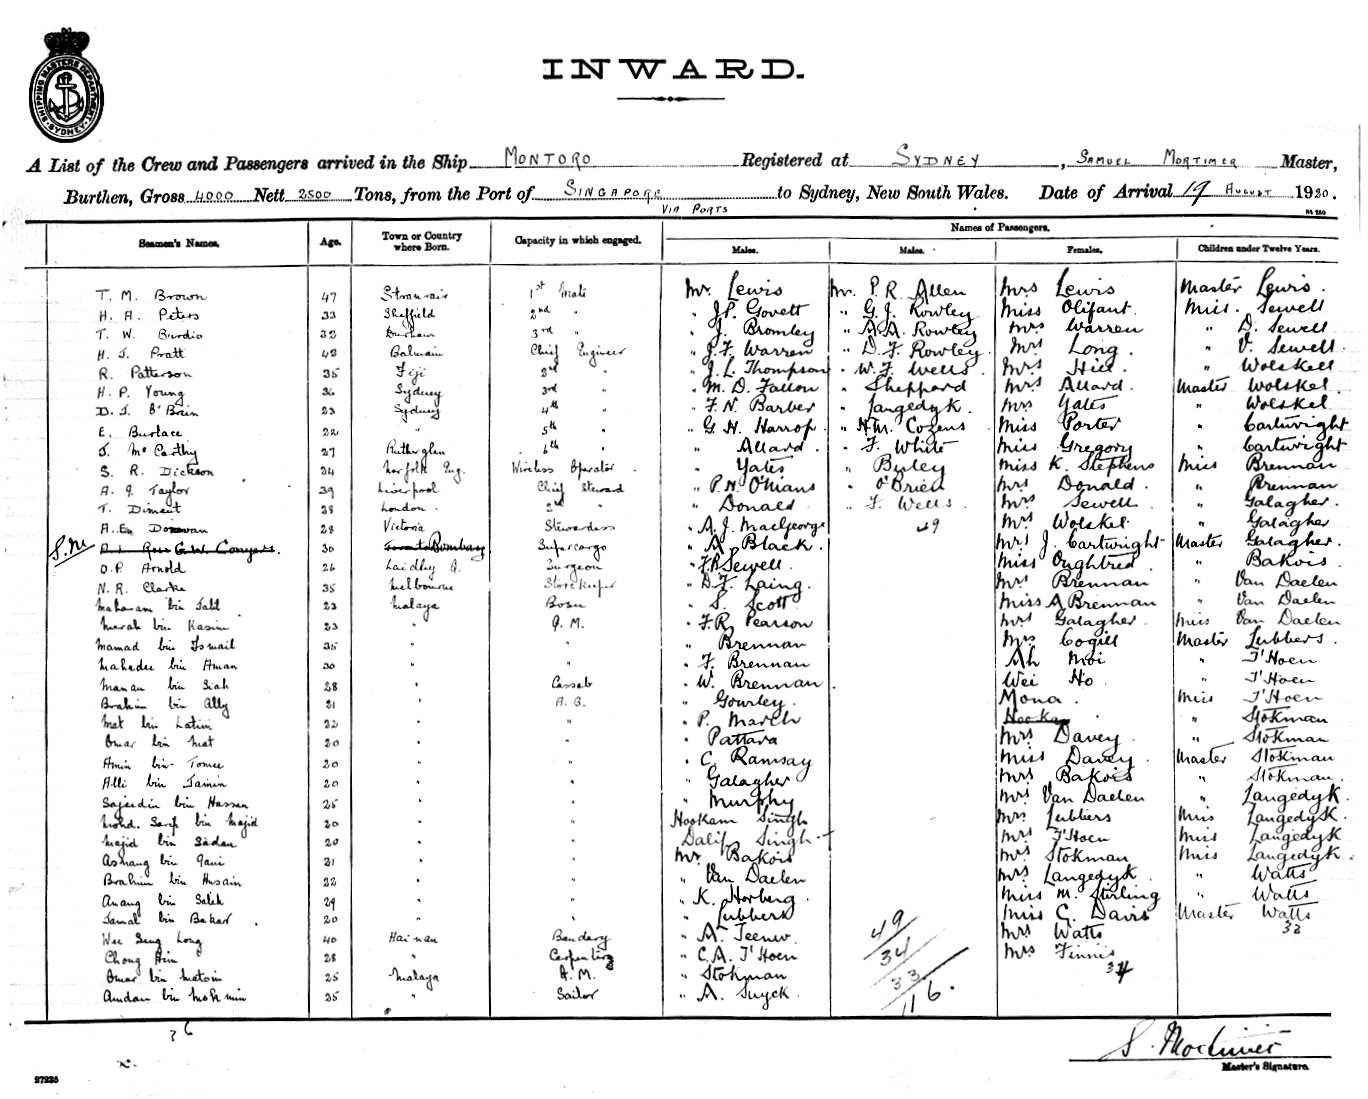 SHIPPING MASTERS DEPARTMENT SYDNEY
INWARD.
A List of the Crew and Passengers arrived in the Ship MONTORO Registered at SYDNEY, SAMUEL MORTIMER Master,
Burthen, Gross 4000 Nett 2500 Tons, from the Port of SINGAPORE to Sydney, New South Wales. Date of Arrival 19 AUGUST 1930.
VIA PORTS
Seamen's Names. Age. Town or Country where Born. Capacity in which engaged. Names of Passengers.
Males. Males. Females. Children under Twelve Years.
T. M. Brown 47 Stranraer 1st Mate Mr. Lewis Mr. P. R. Allen Mrs Lewis Master Lewis.
H. A. Peters 33 Sheffield 2nd " " J.P. Govett " G. J. Rowley Miss Olifant. Miss. Sewell
T. W. Burdis 32 Durham 3rd " " J. Bromley " A. A. Rowley Mrs Warren " D. Sewell
H. J. Pratt 42 Balmain Chief Engineer " J. F. Warren " D. F. Rowley Mrs Long. " V. Sewell.
R. Patterson 35 Fiji 2nd " " J. L. Thompson " W. F. Wells. Mrs Hill " Wolskell
H. P. Young 36 Sydney 3rd " " M. D. Fallon " Sheppard Mrs Allard. Master Wolskel.
D. J. O'Brien 23 Sydney 4th " " F. N. Barber " Langedyk. Mrs Yates " Wolskel
E. Burlace 22 " 5th " " G. H. Harrop " H.M. Cozens Miss Porter " Cartwright
J. McCarthy 27 Rutherglen 6th " " Allard. " F. White Miss Gregory " Cartwright
S. R. Dickson 24 Norfolk Eng. Wireless Operator " Yates " Buley Miss K. Stephens Miss Brennan
A. J. Taylor 39 Liverpool Chief Steward " P. N. O'Mans " O'Brien Mrs Donald. " Brennan
T. Diment 28 London. 2nd " " Donald " F. Wells Mrs Sewell " Galagher.
A. E. Donovan 28 Victoria Stewardess " A. J. MacGeorge 49 Mrs Wolskel. " Galagher
S.M. G.W. Conyers. 30 Bombay Supercargo " A. Black. Mrs J. Cartwright Master Galagher.
O.P. Arnold 26 Laidley Q. Surgeon " F.R. Sewell. Miss Oughtred " Bakois
N. R. Clarke 35 Melbourne Storekeeper " D. F. Laing. Mrs Brennan " Van Daelen
Maharam bin Talib 23 Malaya Bosun " S. Scott Miss A Brennan " Van Daelen
Merah bin Kasim 23 " Q. M. " F. R. Pearson Mrs Galagher. Miss Van Daelen
Mamad bin Ismail 35 " " " Brennan Mrs Cogill Master Lubbers.
Mahadee bin Aman 30 " " " F. Brennan Ah Moi " T'Hoen
Manan bin Siah 28 " Cassab " W. Brennan Wei Ho " T'Hoen
Brahim bin Ally 21 " A. B. " Gourley. Mona Miss T'Hoen
Mat bin Latim 22 " " " P. March Hookam " Stokman
Omar bin Mat 20 " " " Pattara Mrs Davey. " Stokman
Amin bin Tomee 20 " " " C. Ramsay Miss Davey. Master Stokman
Alli bin Jamin 20 " " " Galagher Mrs Bakois " Stokman.
Sajeedin bin Hassan 25 " " " Murphy Mrs Van Daelen " Langedyk.
Mohd. Sarip bin Majid 20 " " Hookam Singh Mrs Lubbers Miss Langedyk.
Majid bin Sadan 20 " " Dalip Singh Mrs T'Hoen Miss Langedyk
Ashang bin Gani 21 " " Mr. Bakois Mrs Stokman Miss Langedyk.
Brahim bin Husain 22 " " " Van Daelen Mrs Langedyk. " Watts
Awang bin Saleh 29 " " " K. Horberg. Miss M. Stirling " Watts
Jamal bin Bakar 20 " " " Lubbers Miss C. Davis Master Watts
Wee Seng Long 40 Hainan Bandary " A. Teenw. Mrs Watts 33
Chong Hin 28 " Carpenter " C. A. T'Hoen Mrs Finnis
Omar bin Matsin 25 Malaya Q. M. " Stokman 34
Amdan bin Mohmin 25 " Sailor " A. Suyck.
49
34
33
116.
36
S. Mortimer
Master's Signature.
27235